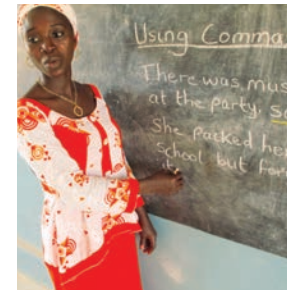 Using Comma
There was mus
at the party, so
She packed her
school but for
it